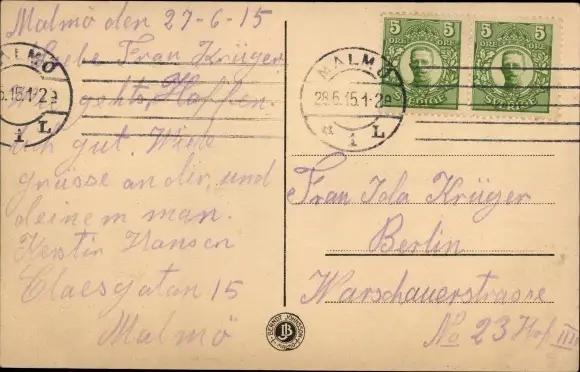 Malmö den 27-6-15
Liebe Frau Krüger
Hoffen
gut. Viele
grüsse an dir, und
deinem man.
Kerstin Hansen
Claesgatan 15
Malmö
MALMÖ
5.15.1-2a
1 L
MALMÖ
28.6.15.1-2a
* 1 L
5 5
ÖRE ÖRE
SVERIGE
5 5
ÖRE ÖRE
SVERIGE
Frau Ida Krüger
Berlin
Warschauerstrasse
No 23 Hof III